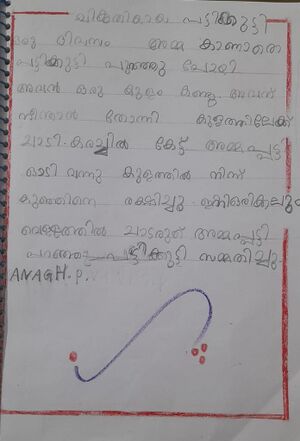 വികൃതിയായ പട്ടിക്കുട്ടി
ഒരു ദിവസം അമ്മ കാണാതെ
പട്ടിക്കുട്ടി പുറത്തു പോയി
അവൻ ഒരു കുളം കണ്ടു. അവന്
നീന്താൻ തോന്നി കുളത്തിലേക്ക്
ചാടി. കരച്ചിൽ കേട്ട് അമ്മപ്പട്ടി
ഓടി വന്നു കുളത്തിൽ നിന്ന്
കുഞ്ഞിനെ രക്ഷിച്ചു. ഇനിഒരിക്കലും
വെള്ളത്തിൽ ചാടരുത് അമ്മപ്പട്ടി
പറഞ്ഞു പട്ടിക്കുട്ടി സമ്മതിച്ചു.
ANAGH.P.